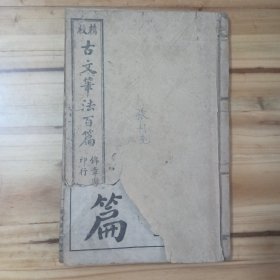 精校
古文筆法百篇
錦章
印行
篇